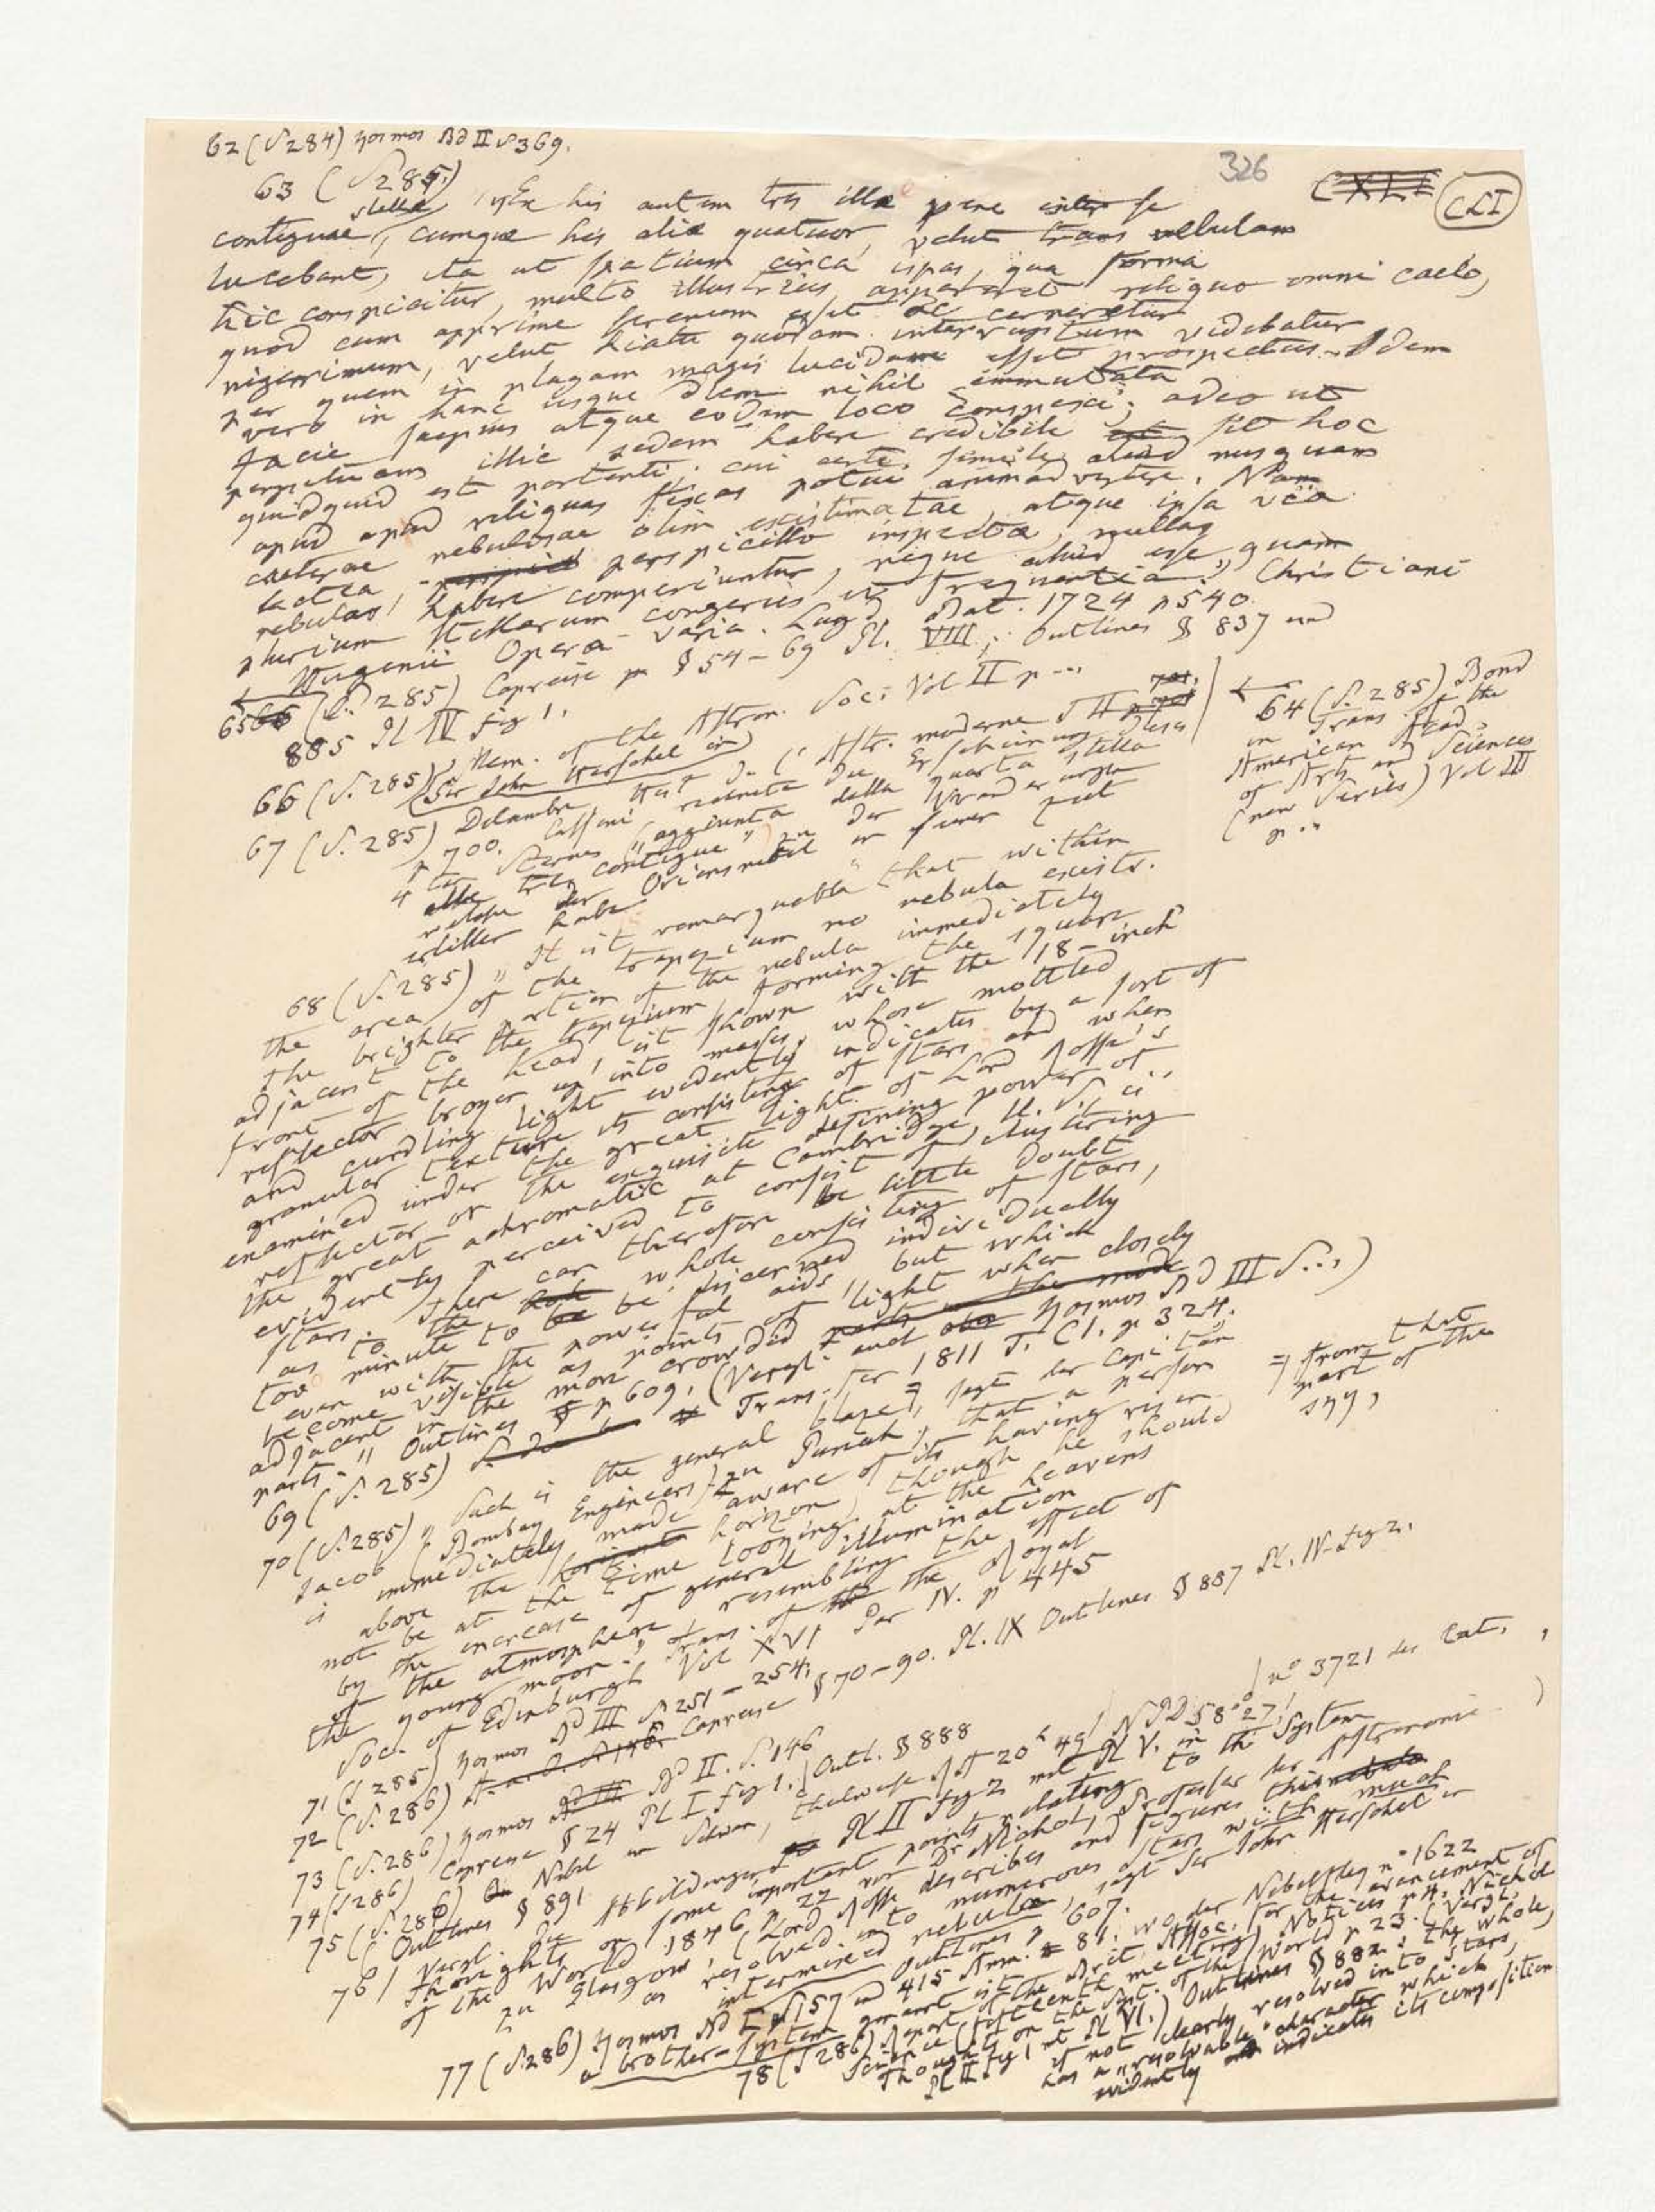 62 (S 284) Kosmos Bd II S 369.
326
CXLI
CLI
63 (S 285)
stellae „Ex his autem tres illae pene inter se
contiguae, cumque his aliae quatuor, velut trans nebulam
lucebant, ita ut spatium circa ipsas, qua forma
hic conspicitur, multo illustrius appareret reliquo omni caelo,
quod cum apprime serenum esset ac cerneretur
nigerrimum, velut hiatu quodam interruptum videbatur
per quem in plagam magis lucidam esset prospectus. Idem
vero in hanc usque diem nihil immutata
facie saepius atque eodem loco conspexi; adeo ut
perpetuam illic sedem habere credibile sit hoc
quidquid est portenti: cui certe simile aliud nusquam
apud reliquas fixas potui animadvertere. Nam
caeterae nebulosae olim existimatae, atque ipsa via
lactea, perspicillo inspectae, nullas
nebulas habere comperiuntur, neque aliud esse quam
plurium stellarum congeries et frequentia.” Christiani
Hugenii Opera varia. Lugd. Bat. 1724 p 540.
65 (S. 285) Capreise § 54–69 Pl. VIII; Outlines § 837 und
885 Pl IV fig 1.
64 (S. 285) Bond
in Trans. of the
American Acad.
of Arts and Sciences
(new Series) Vol III
p ..
66 (S. 285) Mem. of the Astron. Soc. Vol II p ...
(Sir John Herschel in)
67 (S. 285) Delambre, Hist de l'Astr. moderne T II
p 700. Cassini rechnete die Erscheinung dieses
4ten Sternes („aggiunta della quarta stella
alle tre contigue”) zu der Veränderungen
welche der Orionsnebel in seiner Zeit
erlitten habe.
68 (S. 285) „It is remarquable that within
the area of the trapezium no nebula exists.
The brighter portion of the nebula immediately
adjacent to the trapezium, forming the square
front of the head, is shown with the 18-inch
reflector broken up into masses, whose mottled
and curdling light evidently indicates by a sort of
granular texture its consisting of stars and when
examined under the great light of Lord Rosse's
reflector or the exquisite defining power of
the great achromatic at Cambridge, U. S., is
evidently perceived to consist of clustering
stars. There can therefore be little doubt
as to the whole consisting of stars,
too minute to be discerned individually
even with the powerful aids, but which
become visible as points of light when closely
adjacent in the more crowded
parts.” Outlines p 609. (Vergl. auch Kosmos Bd III S...)
69 (S. 285) Trans. for 1811 T. CI. p 324.
70 (S. 285) „Such is the general blaze, ⇒ sagt der Capitän
Jacob (Bombay Engineers) zu Punah, that a person
is immediately made aware of its having risen
above the horizon, though he should
not be at the time looking at the heavens
by the increase of general illumination
of the atmosphere, resembling the effect of
the young moon.” Trans. of the Royal
Soc. of Edinburgh Vol XVI Par IV. p 445
⇒ from that
part of the
sky,
71 (S 285) Kosmos Bd III S 251–254.
72 (S. 286) Capreise § 70–90. Pl. IX Outlines § 887 Pl. IV fig 2.
73 (S. 286) Kosmos Bd II. S. 146
74 (S 286) Capreise § 24 Pl I fig 1. Outl. § 888
75 (S. 286) Nebel im Schwan, theilweise AR 20h 49' NPD 58° 27' / n° 3721 des Cat.,
(Outlines § 891
76 / Vergl. die Abbildungen Pl II fig 2 mit Pl V. in
Thoughts on some important points relating to the System
of the World 1846 p 22 von Dr Nichol, Professor der Astronomie
zu Glasgow. (Lord Rosse describes and figures this
as resolved into numerous stars with much
intermixed nebula, sagt Sir John Herschel in
Outlines p 607.
77 (S. 286) Kosmos Bd I S 157 und 415 Anm. 81. wo der Nebelfleck n° 1622
a brother-System genannt ist.
78 (S 286) Report of the Brit. Assoc. for the avancement of
Science (fifteenth meeting) Notices p 4. Nichol
Thoughts on the Syst. of the World p 23. (Vergl.
Pl II fig 1 mit Pl VI.) Outlines § 882: the whole,
if not clearly resolved into stars,
has a „resolvable” character which
evidently indicates its composition